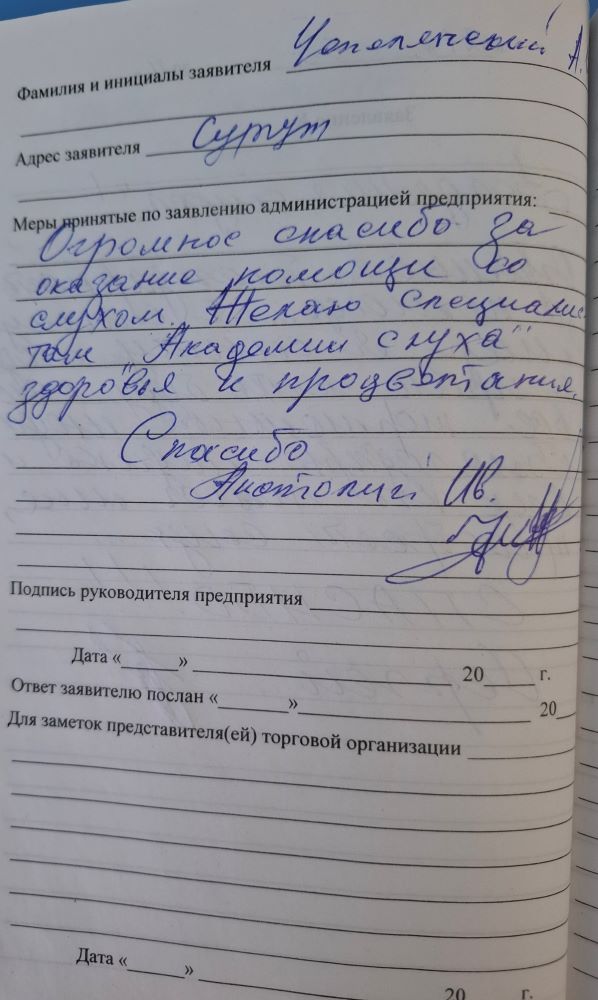 Фамилия и инициалы заявителя А.
Адрес заявителя Сургут
Меры принятые по заявлению администрацией предприятия:
Огромное спасибо за
оказание помощи со
слухом. Желаю специалис
там "Академии слуха"
здоровья и процветания.
Спасибо
Анатолий Ив.
Подпись руководителя предприятия
Дата «______» 20____ г.
Ответ заявителю послан «______» 20__
Для заметок представителя(ей) торговой организации
Дата «______»
20 г.